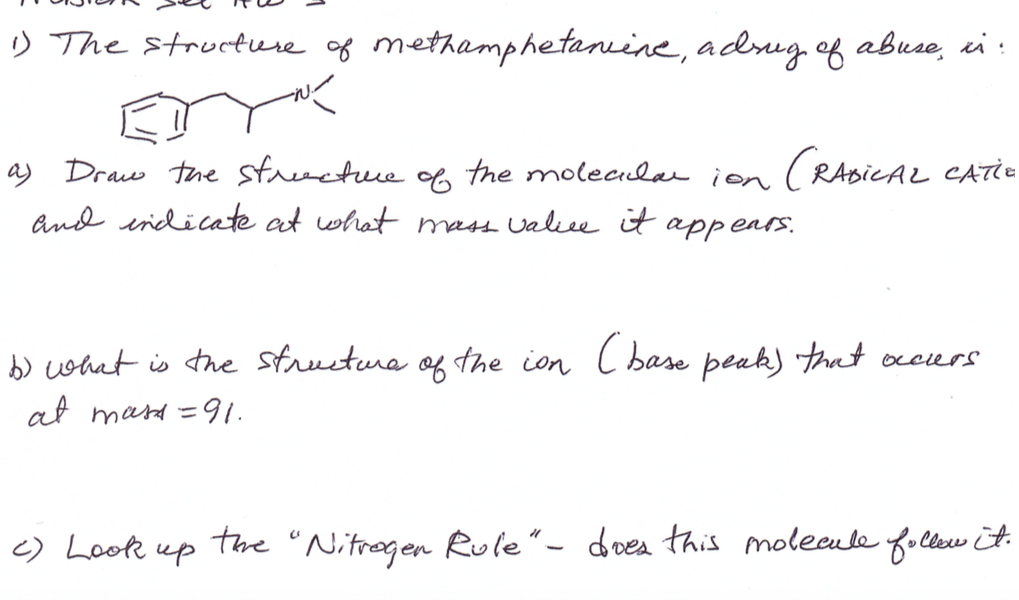 1) The structure of methamphetamine, a drug of abuse, is:
N
a) Draw the structure of the molecular ion (RADICAL CATIO
and indicate at what mass value it appears.
b) what is the structure of the ion (base peak) that occurs
at mass = 91.
c) Look up the "Nitrogen Rule" - does this molecule follow it.